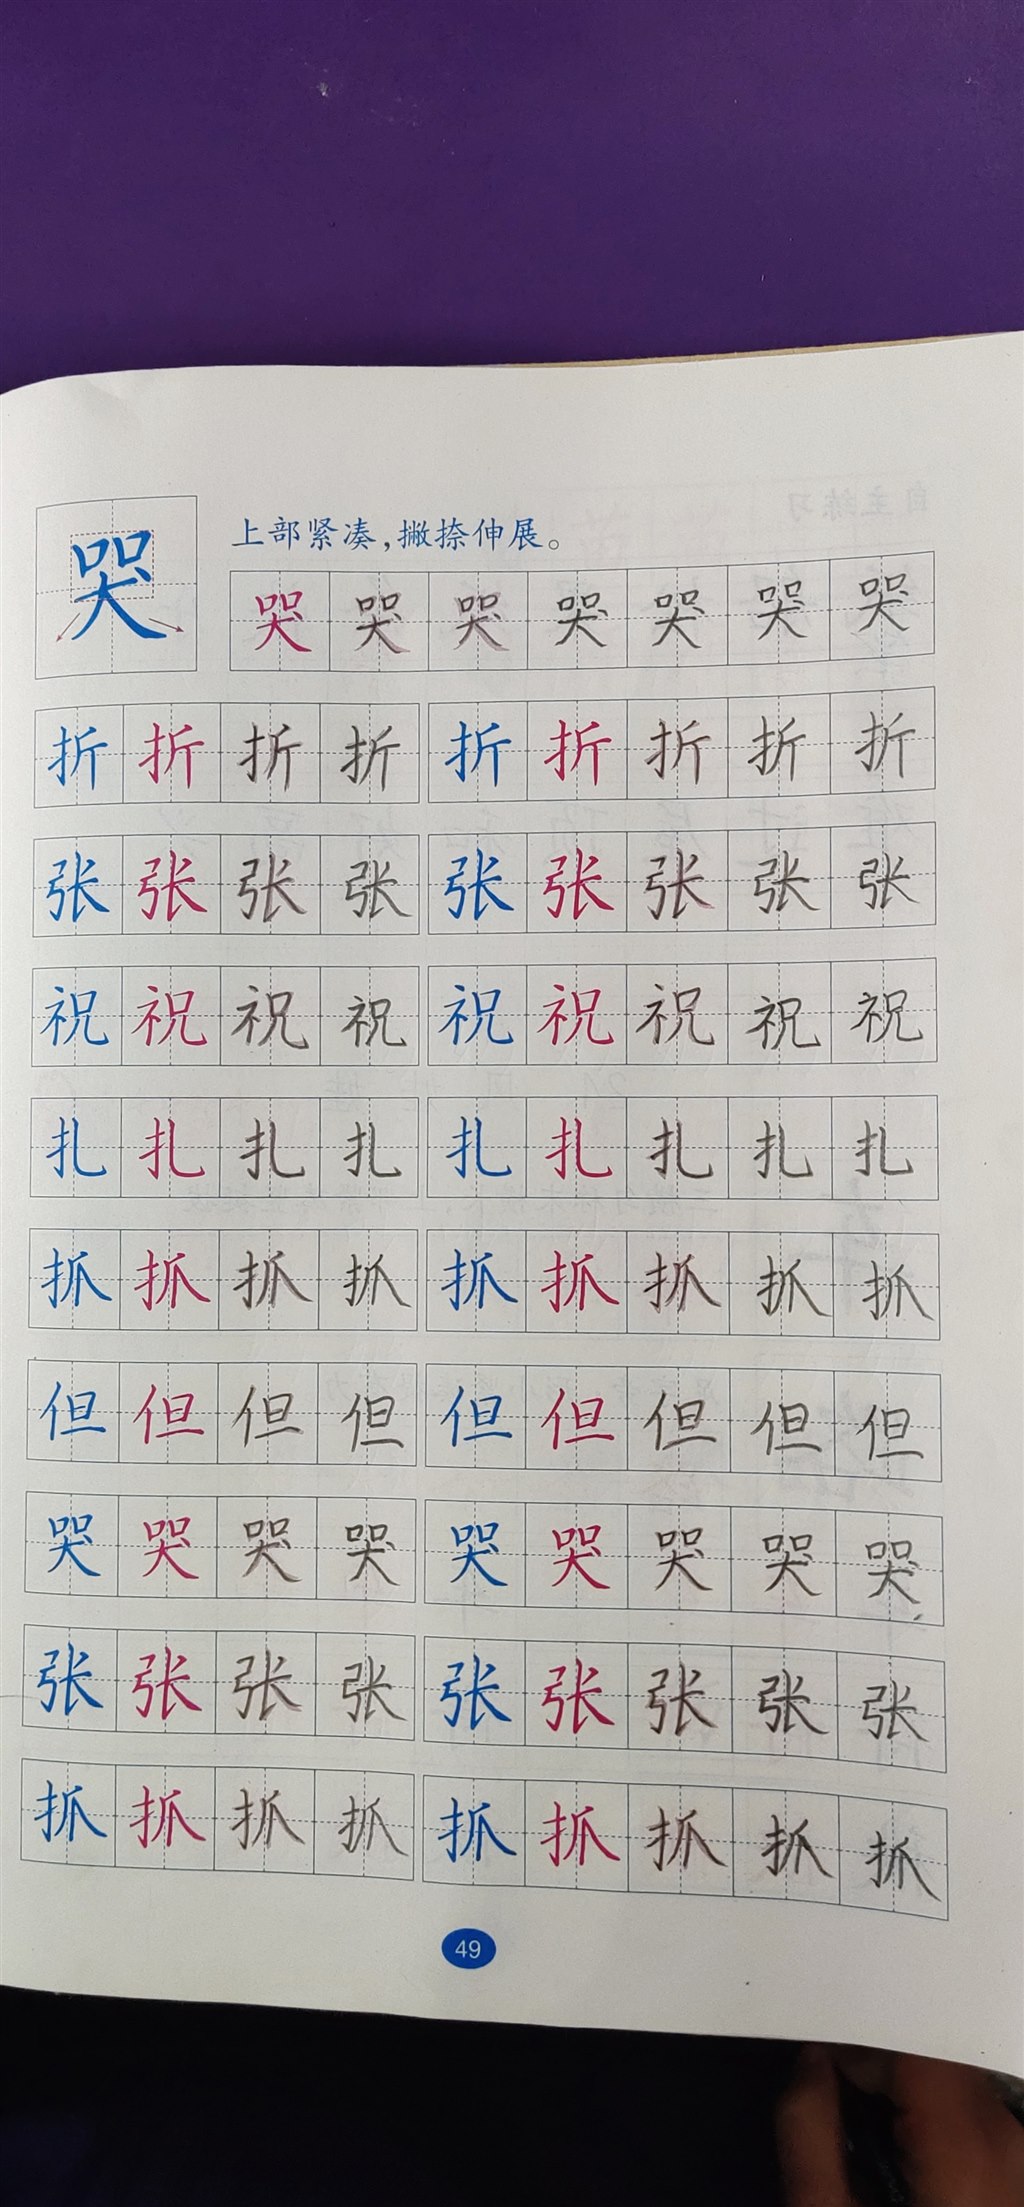 哭
上部紧凑，撇捺伸展。
哭 哭 哭 哭 哭 哭 哭
折 折 折 折 折 折 折 折 折
张 张 张 张 张 张 张 张 张
祝 祝 祝 祝 祝 祝 祝 祝 祝
扎 扎 扎 扎 扎 扎 扎 扎 扎
抓 抓 抓 抓 抓 抓 抓 抓 抓
但 但 但 但 但 但 但 但 但
哭 哭 哭 哭 哭 哭 哭 哭 哭
张 张 张 张 张 张 张 张 张
抓 抓 抓 抓 抓 抓 抓 抓 抓
49